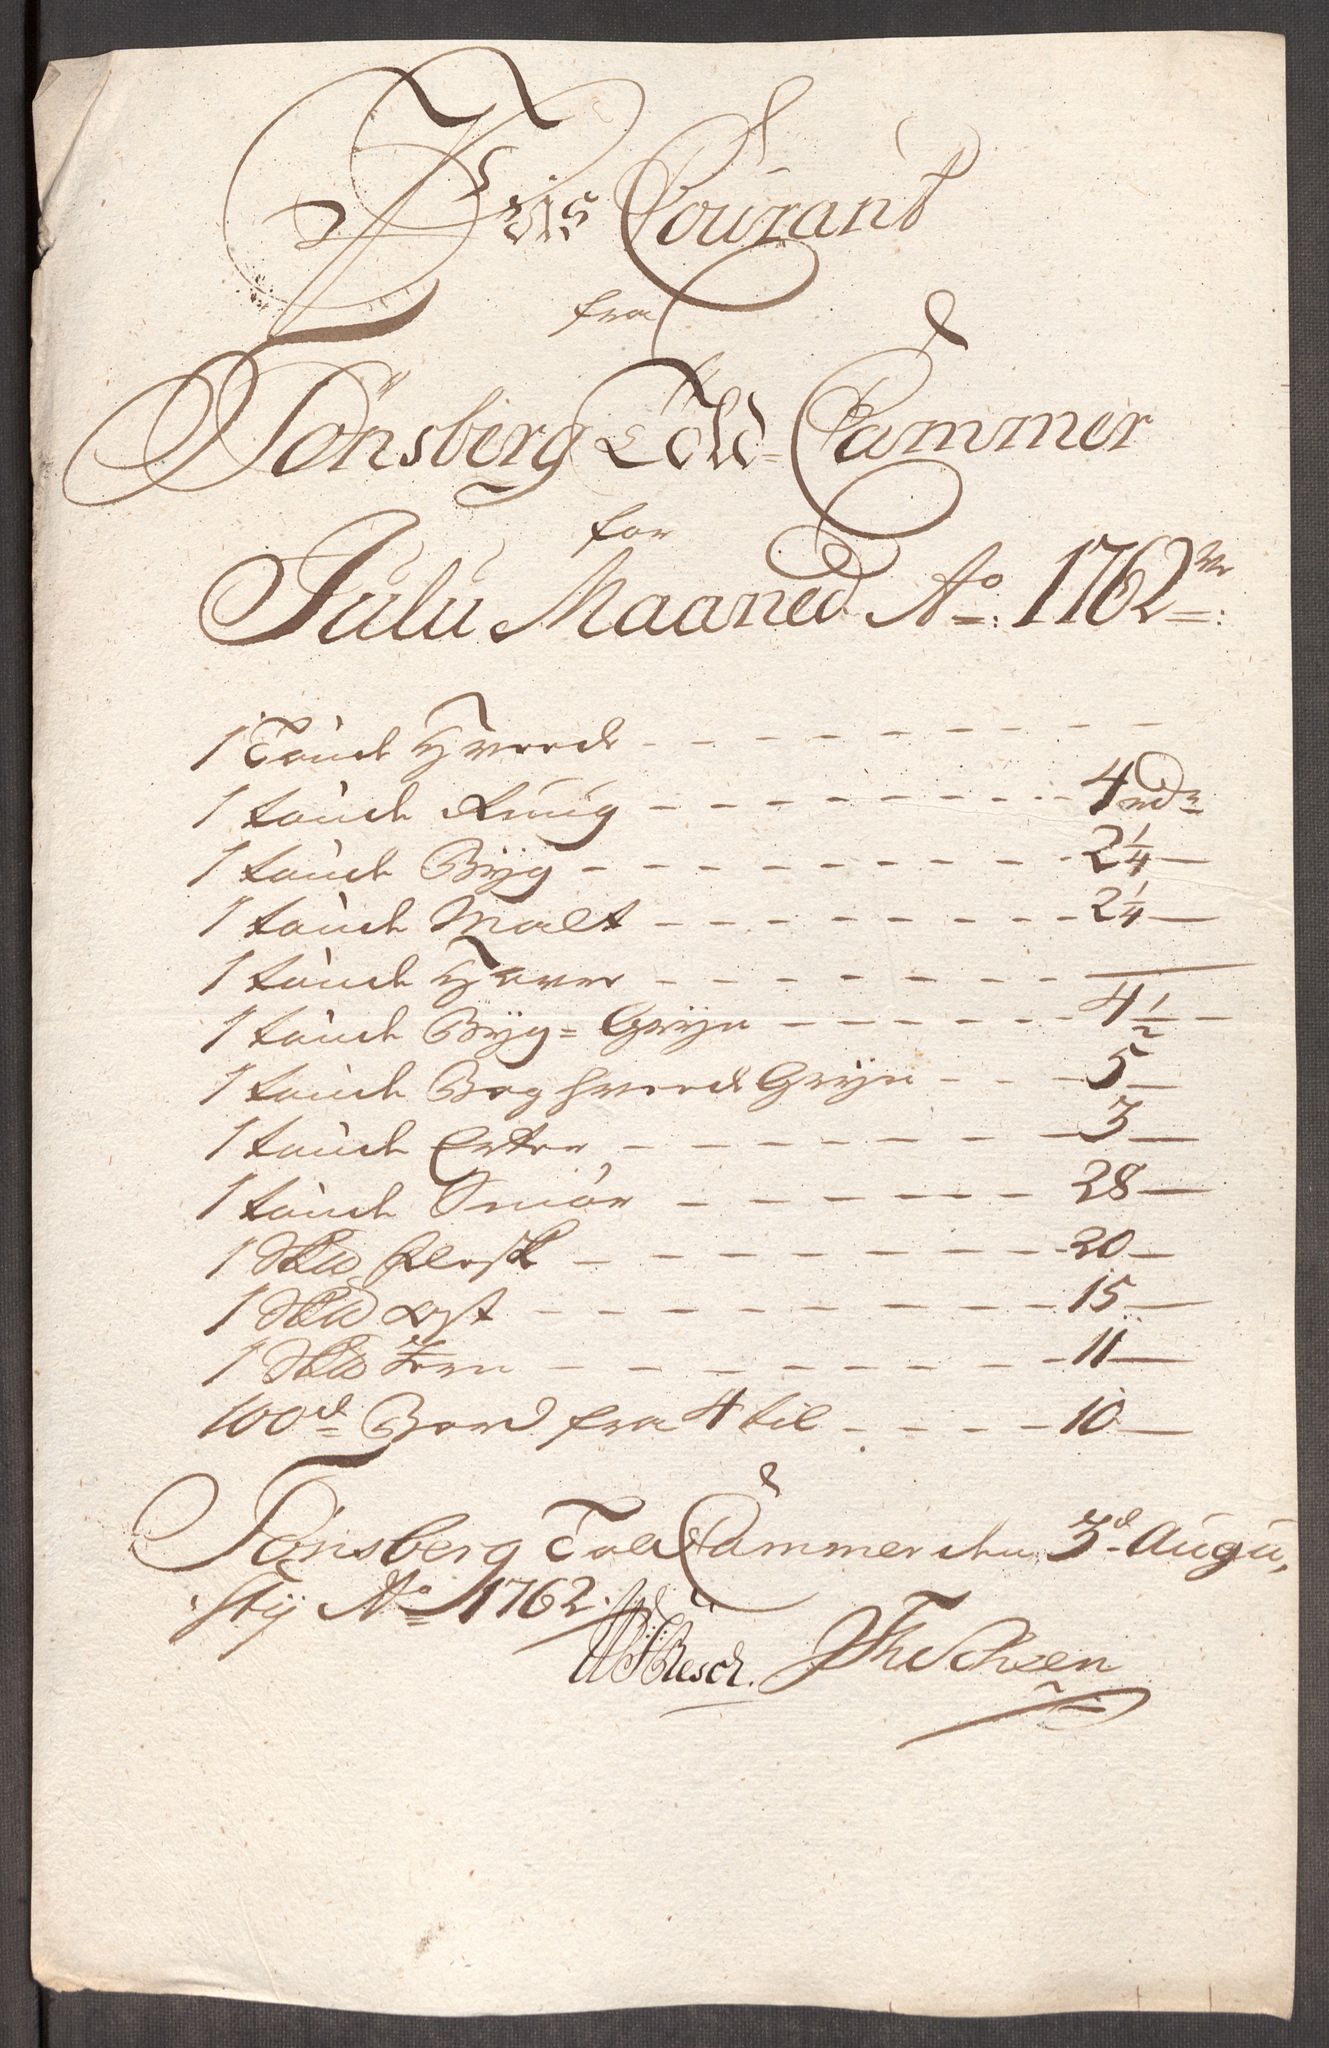 Priis Courant
fra
Tönsberg Told-Cammer
for
Julii Maaned Ao: 1762
1 Tönde Hvede - - - - - - - -
1 tönde Rüug - - - - - - - - 4 rdr
1 tönde Byg - - - - - - - - 2 1/4 —
1 tönde Malt - - - - - - - - 2 1/4 —
1 tönde Haver - - - - - - - —
1 tönde Byg-Gryn - - - - - 4 1/2 —
1 tönde Boghvede Gryn - - - 5 —
1 tönde Erter - - - - - - - - 3 —
1 tönde Smör - - - - - - - 28 —
1 Skd Flesk - - - - - - - - 20 —
1 Skd Ost - - - - - - - - - 15 —
1 Skd Jern - - - - - - - - 11 —
100d Bord fra 4 til - - - - 10 —
Tönsberg Told Cammer den 3d Augu,
stij Ao 1762.
Resch. Thesen